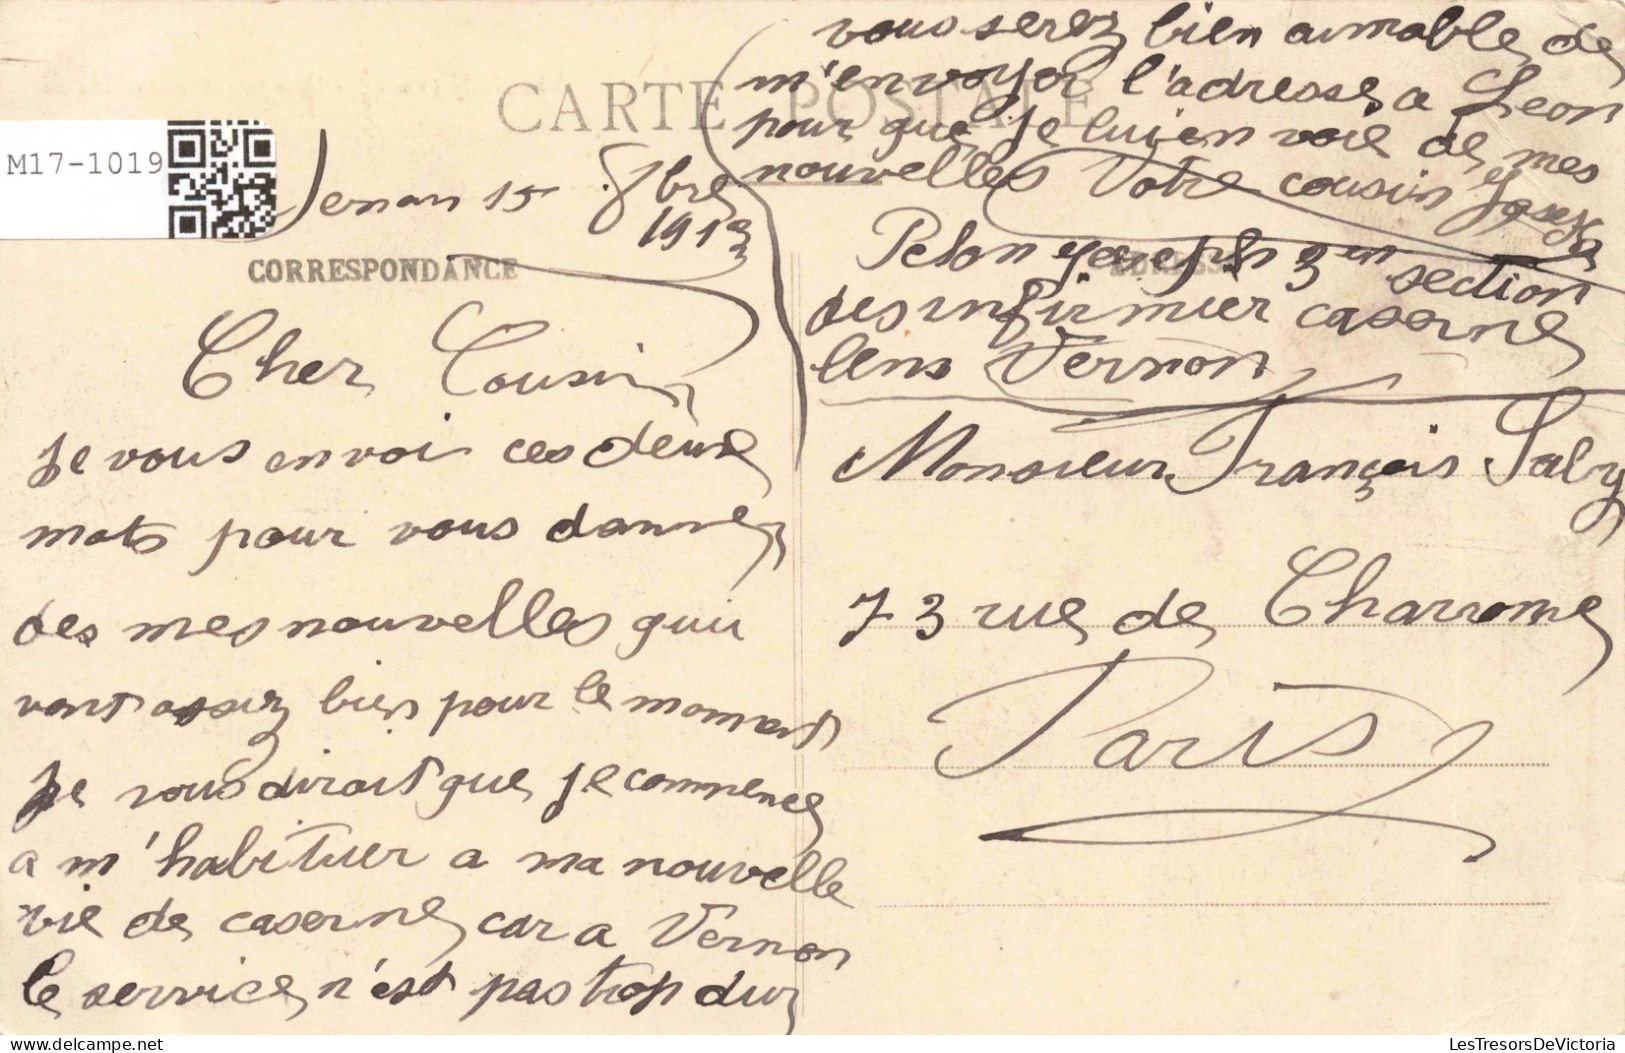 M17-1019
CARTE POSTALE
CORRESPONDANCE
ADRESSE
Vernon 15 8bre
1913
Cher Cousin
je vous envoi ces deux
mots pour vous donner
des mes nouvelles qui
vont assez bien pour le moment
Je vous dirait que je commence
a m'habituer a ma nouvelle
vie de caserne car a Vernon
le service n'est pas trop dur
vous serez bien aimable de
m'envoyer l'adresse a Leon
pour que je lui en voie de mes
nouvelles Votre cousin Joseph
Pelon Joseph 3 em section
des infirmier caserne
lens Vernon
Monsieur François Saly
73 rue de Charrone
Paris
delcampe.net
LesTresorsDeVictoria